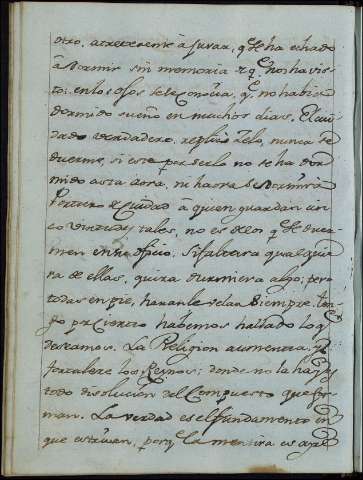 otro, atreverente à jurar, q̃ se ha echado
à Dormir sin memoria y q̃ nos ha vis-
to: en los ojos se le conozca, q̃ no habia
dormido sueño en muchos dias. El cui
dado verdadero, replicò Zelo, nunca se
duerme, si este por serlo no se ha dor
mido asta aora, ni haora se dormirà
Portero de Ciudad à quien guardan cin
co virtudes tales, no es de los q̃ se duer
men en tal oficio. Si faltara qualqui
ra de ellas, quiza durmiera algo; pero
todas en pie, haranle velar Siempre. Ten
go por cierto habemos hallado lo q̃
deseamos. La Religion aumenta y
fortalece los Reynos; donde no la hay es
todo disolucion del Compuesto que for
man. La verdad es el fundamento en
que estrivan, porq̃ la mentira es ayre